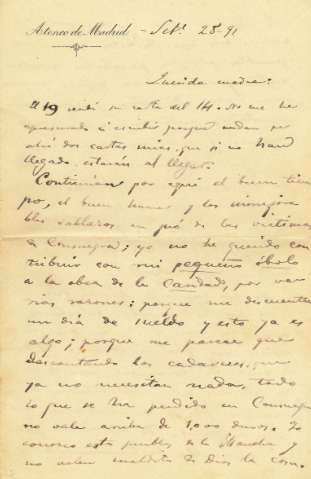 Ateneo de Madrid - Set. 28-91
Querida madre:
El 19 recibí su carta del 14. No me he
apresurado á escribir porque andan por
ahí dos cartas mías, que si no han
llegado, estarán al llegar.
Continúan por aquí el buen tiem
po, el buen humor y los
en pró de las víctimas
de Consuegra; yo no he querido con
tribuir con mi pequeño óbolo
a la obra de la Caridad, por va
rias razones: porque me descuentan
un día de sueldo y esto ya es
algo; porque me parece que
descontando los cadáveres, que
ya no necesitan nada, todo
lo que se ha perdido en Consuegra
no vale arriba de 1,000 duros. Yo
conozco estos pueblos de la Mancha y
no valen maldita de Dios la cosa.